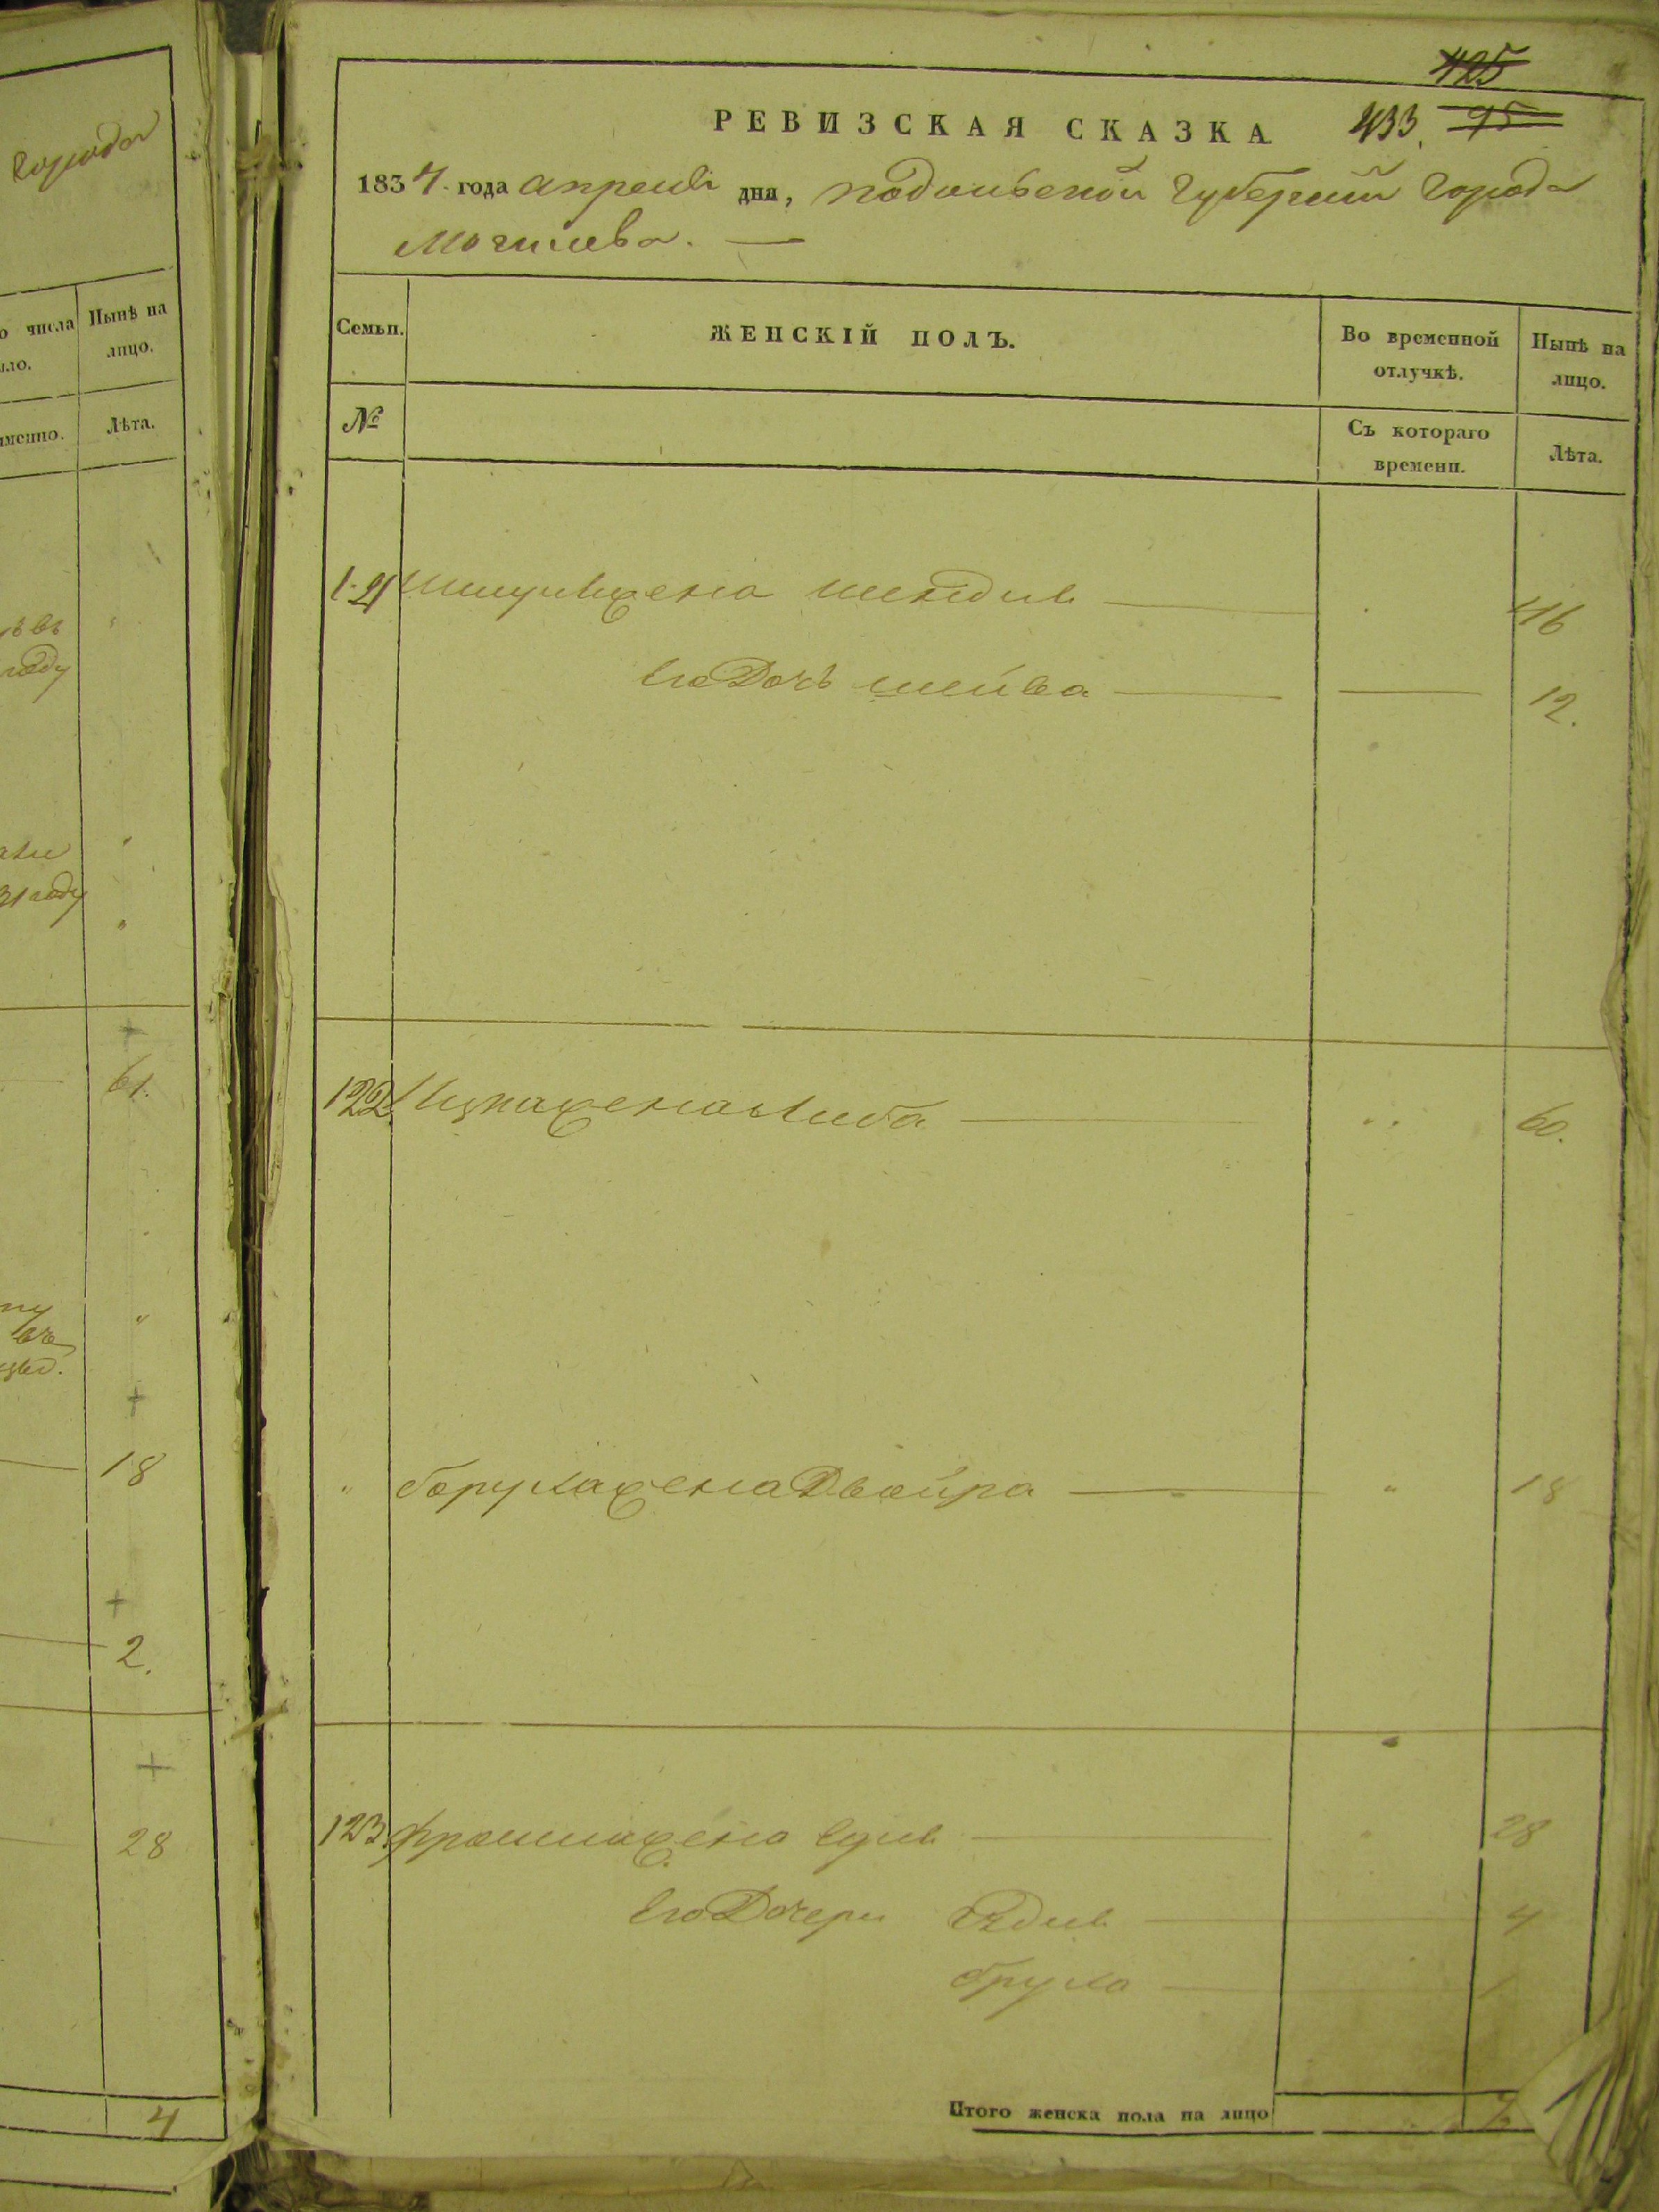 города
о числа
Нынѣ на
ыло.
лицо.
именно.
Лѣта.
году
31 году
61.
18
2.
28
4
425
РЕВИЗСКАЯ СКАЗКА
433. 95
1834 года апреля дня, подольской губернии города
Могилева.
Семьи.
ЖЕНСКІЙ ПОЛЪ.
Во временной
отлучкѣ.
Нынѣ на
лицо.
№
Съ котораго
времени.
Лѣта.
121 Шмуля жена шендля 46
Его Дочь шейва 12.
122 Ицка жена Либа 60.
" боруха жена Двойра " 18
123. фроима жена Едля 28
Его Дочери 4
бруха 1
Итого женска пола на лицо 7